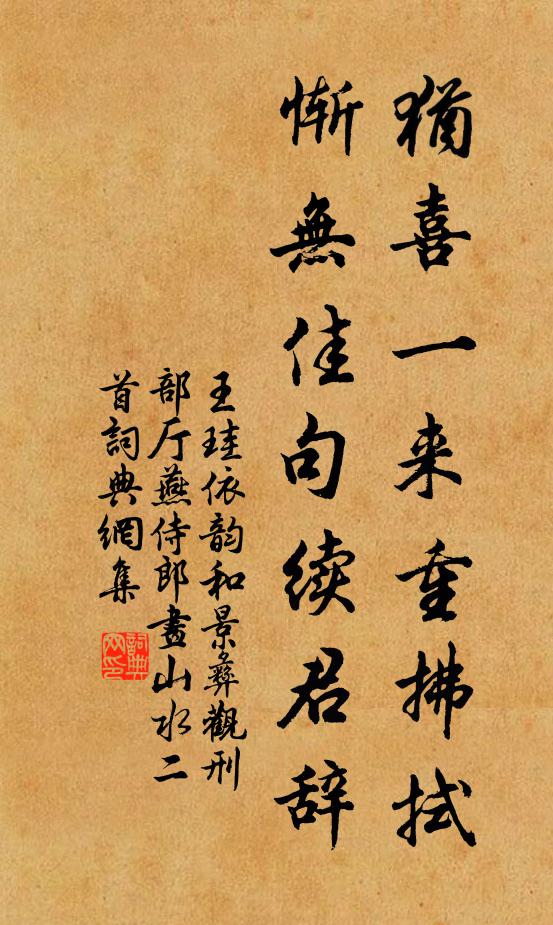 猶喜一来重拂拭
慚無佳句续君辞
王珪依韵和景彝觀刑
部厅燕侍郎畫山水二
首詞典網集
詞典
网印